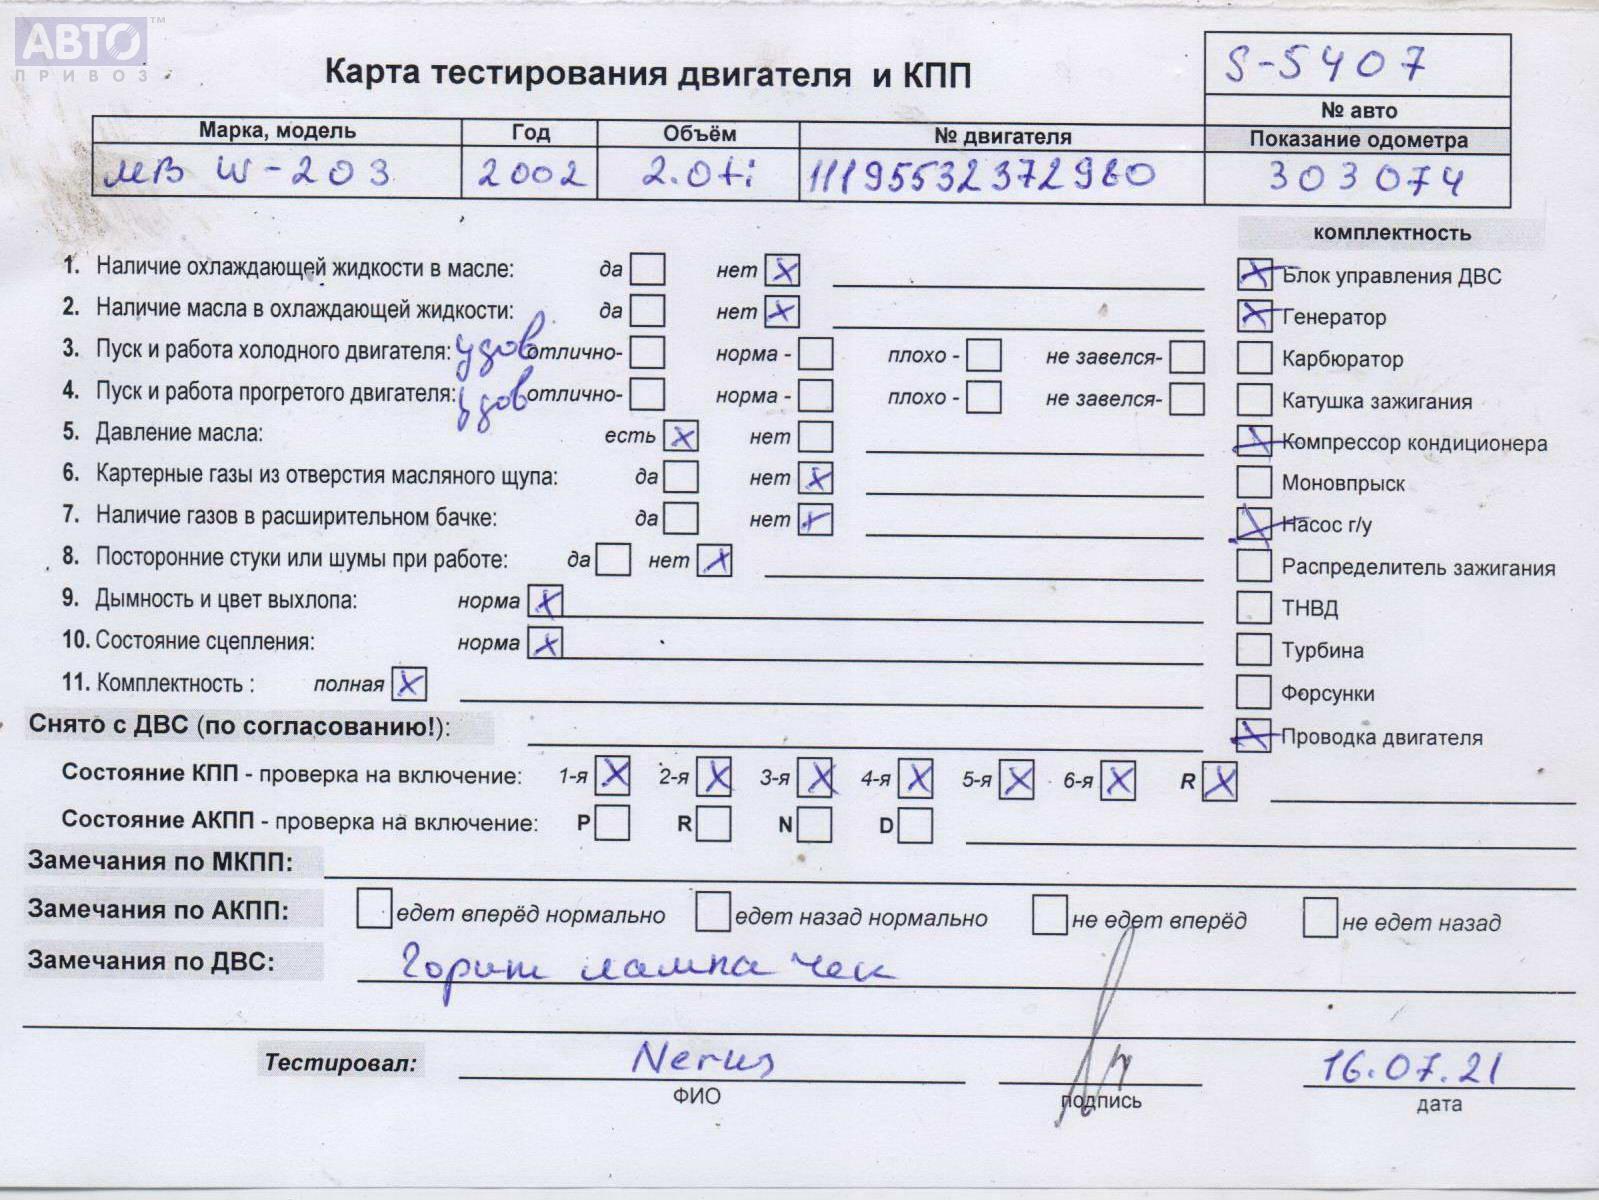 АВТО™
ПРИВОЗ
Карта тестирования двигателя и КПП
S-5407
№ авто
Марка, модель Год Объём № двигателя Показание одометра
MB W-203 2002 2.0ti 11195532372960 303074
комплектность
1. Наличие охлаждающей жидкости в масле: да нет X
2. Наличие масла в охлаждающей жидкости: да нет X
3. Пуск и работа холодного двигателя: удов отлично- норма - плохо - не завелся-
4. Пуск и работа прогретого двигателя: удов отлично- норма - плохо - не завелся-
5. Давление масла: есть X нет
6. Картерные газы из отверстия масляного щупа: да нет X
7. Наличие газов в расширительном бачке: да нет X
8. Посторонние стуки или шумы при работе: да нет X
9. Дымность и цвет выхлопа: норма X
10. Состояние сцепления: норма X
11. Комплектность : полная X
X Блок управления ДВС
X Генератор
Карбюратор
Катушка зажигания
X Компрессор кондиционера
Моновпрыск
X Насос г/у
Распределитель зажигания
ТНВД
Турбина
Форсунки
X Проводка двигателя
Снято с ДВС (по согласованию!):
Состояние КПП - проверка на включение: 1-я X 2-я X 3-я X 4-я X 5-я X 6-я X R X
Состояние АКПП - проверка на включение: P R N D
Замечания по МКПП:
Замечания по АКПП: едет вперёд нормально едет назад нормально не едет вперёд не едет назад
Замечания по ДВС: Горит лампа чек
Тестировал: Nerus 16.07.21
ФИО подпись дата